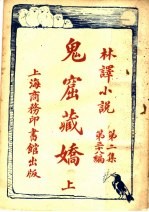 林譯小說
第二集
第六編
鬼窟藏嬌
上
上海商務印書館出版